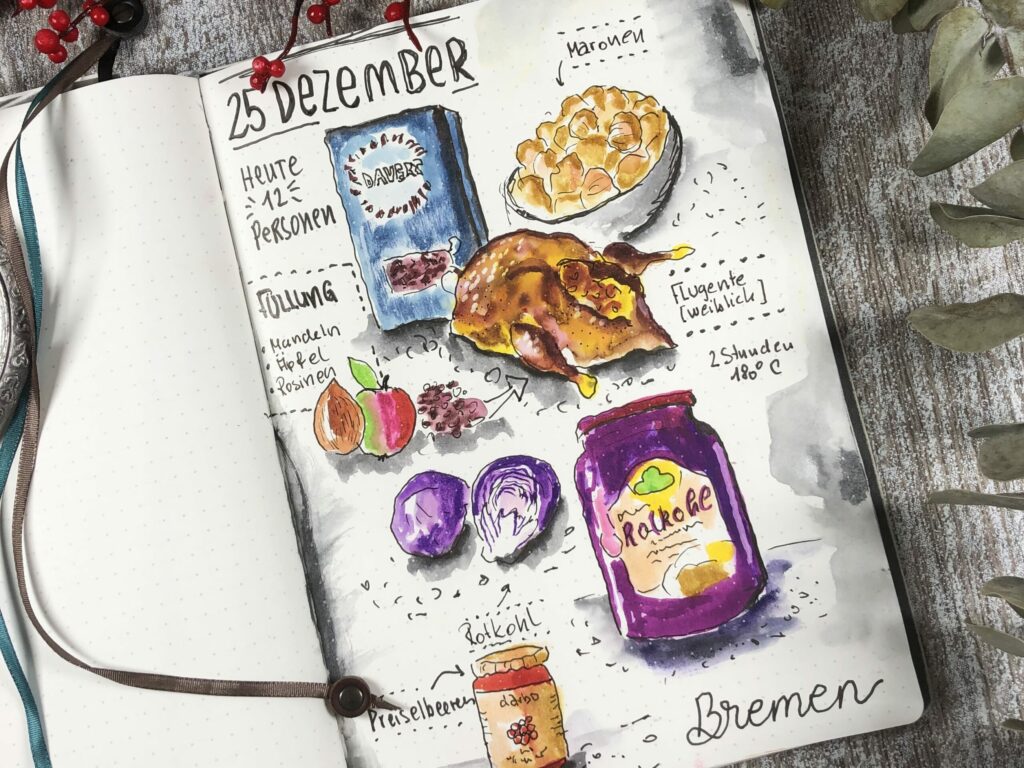 25 DEZEMBER
Maronen
HEUTE
12
PERSONEN
DAVERT
FÜLLUNG
Mandeln
Äpfel
Rosinen
[Flugente
weiblich]
2 Stunden
180° C
Rotkohl
Rotkohl
Preiselbeeren
darbo
Bremen